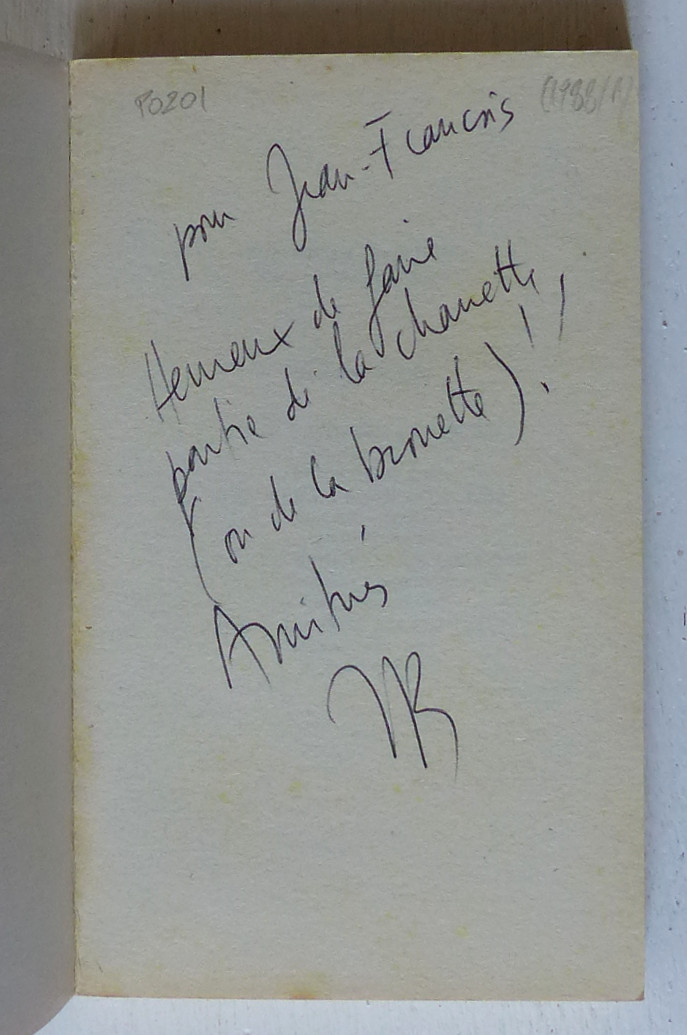 P0201
(1988/1)
pour Jean-François
Heureux de faire
partie de la charrette,
(ou de la brouette) !!
Amitiés